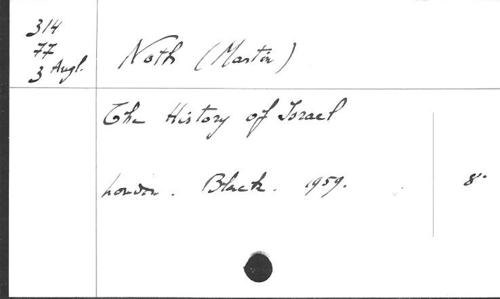 314
77
3 Angl.
Noth (Martin)
The History of Israel
London. Black. 1959. 8°